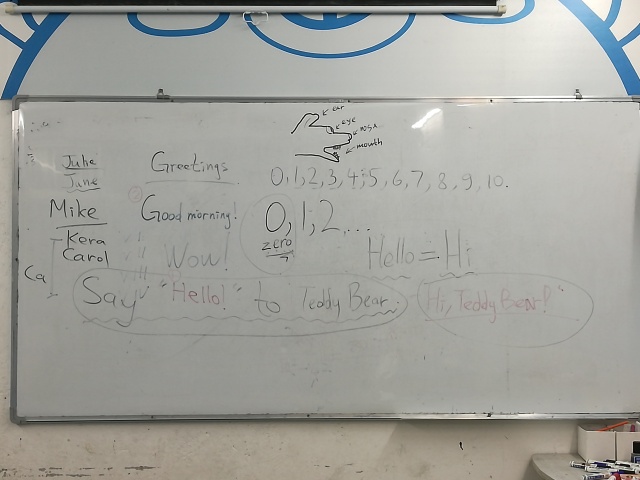 ear
eye
nose
mouth
Julie
June
Mike
Kera
Carol
Ca
Greetings
0, 1, 2, 3, 4, 5, 6, 7, 8, 9, 10.
Good morning!
0, 1, 2, ...
zero
Wow!
Hello = Hi
Say "Hello!" to Teddy Bear.
"Hi, Teddy Bear!"